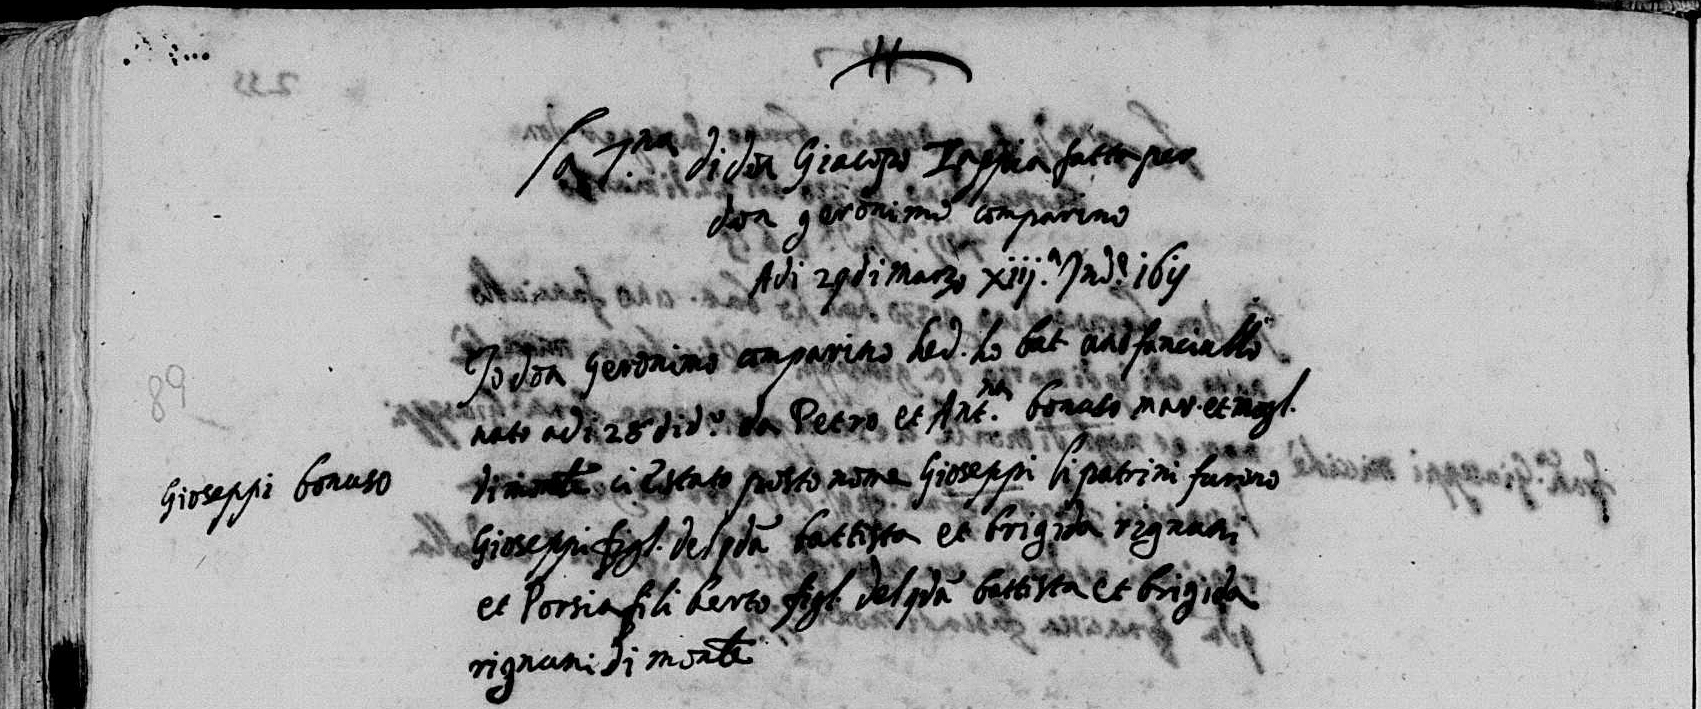 La 7.na di don Giacopo fatta per
don geronimo comparino
Adi 29 di Marzo xiij.a Ind.e 161
Io don Geronimo comparino hed. ho bat uno fanciullo
nato adi 28 di d.o da Petro et Ant.na bonaso mar. et mogl.
di monte ci È stato posto nome Gioseppi li patrini furono
Gioseppi figl. del qda battista et brigida rignani
et Porsia fili berto figl. del qda battista et brigida
rignani di monte
Gioseppi bonaso
89